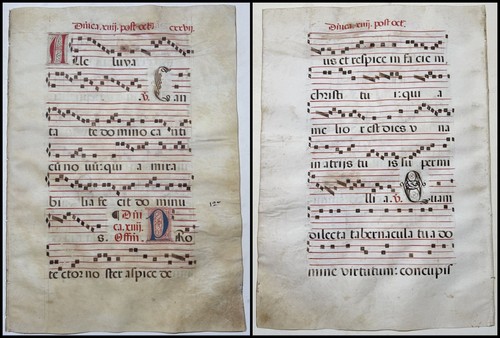 Dñica. xiiij. post oct. cxxvij.
Alle luya
℣. Can
ta te domino ca nti
cũ no uũ: qui a mira
bi lia fe cit do minu
s. Dñi
ca. xiiij.
Offm̃. PRO
tector no ster aspice de
Dñica. xiiij. post oct.
us et respice in fa cie m
christi tu i: qui a
me lior est dies v na
in atrijs tu is su permi
llia. ℣. Quam
dilecta tabernacula tua do
mine virtutum: concupis